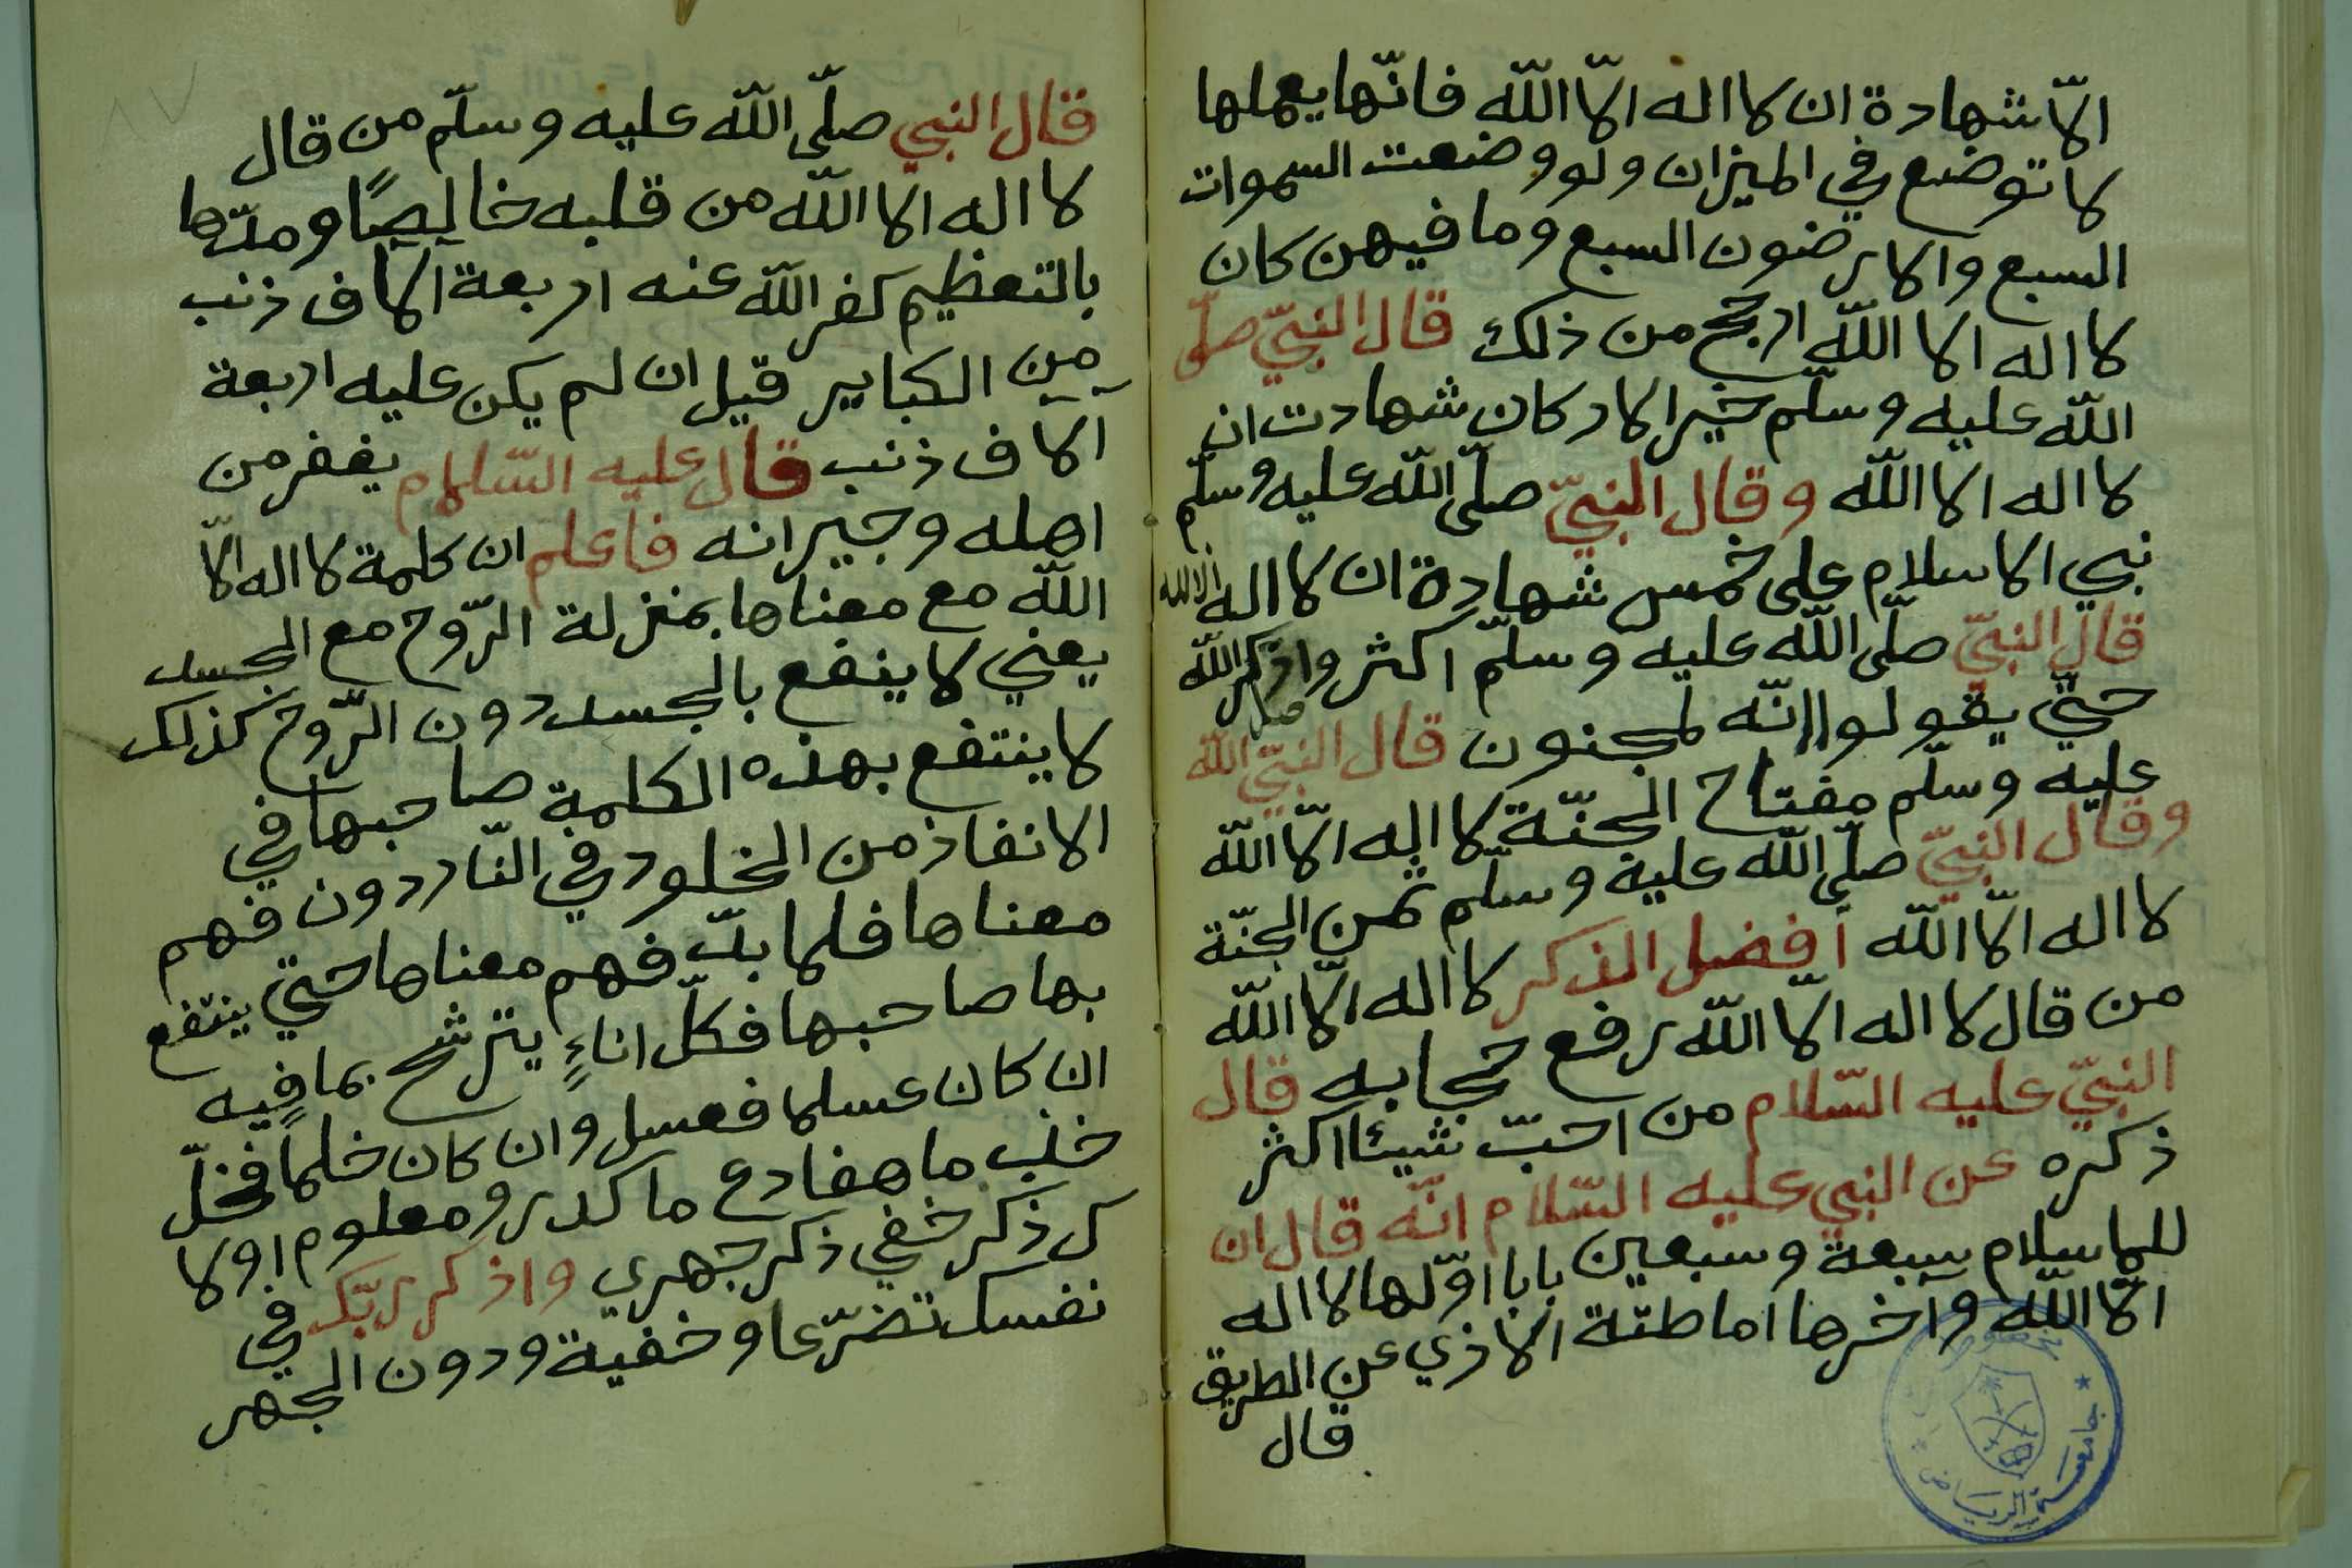 الّا شهادة ان لا اله الّا اللّه فانّها يعملها
لا توضع في الميزان ولو وضعت السموات
السبع والارضون السبع وما فيهن كان
لا اله الا اللّه ارجح من ذلك قال النبيّ صلّى
اللّه عليه وسلّم خير الاركان شهادت ان
لا اله الا اللّه وقال النبيّ صلّى اللّه عليه وسلّم
نبي الاسلام على خمس شهادة ان لا اله الا الله
قال النبيّ صلّى اللّه عليه وسلّم اكثر واذكر اللّه
حتّي يقولوا انّه لمجنون قال النبيّ صلى اللّه
عليه وسلّم مفتاح الجنّة لا اله الّا اللّه
وقال النبيّ صلّى اللّه عليه وسلّم ثمن الجنّة
لا اله الّا اللّه أفضل الذكر لا اله الّا اللّه
من قال لا اله الّا اللّه رفع حجابه قال
النبيّ عليه السّلام من احبّ شيئا اكثر
ذكره عن النبي عليه السّلام انّه قال ان
للاسلام سبعة وسبعين بابا اوّلها لا اله
الّا اللّه وآخرها اماطتة الاذي عن الطريق
قال
قال النبي صلّى اللّه عليه وسلّم من قال
لا اله الا اللّه من قلبه خالِصًا ومدّها
بالتعظيم كفر اللّه عنه اربعة الاف ذنب
من الكباير قيل ان لم يكن عليه اربعة
آلاف ذنب قال عليه السّلام يغفر من
اهله وجيرانه فاعلم ان كلمة لا اله الّا
اللّه مع معناها بمنزلة الرّوح مع الجسد
يعني لا ينفع بالجسد دون الرّوح كذلك
لا ينتفع بهذه الكلمة صاحبها في
الانفاذ من الخلود في النّار دون فهم
معناها فلا بدّ فهم معناها حتي ينتفع
بها صاحبها فكلّ اناءٍ يترشح بما فيه
ان كان عسلا فعسل وان كان خلاً فخلّ
خذ ما صفا دع ما كدر ومعلوم اولا
كر ذكر خفي ذكر جهري واذكر ربّك في
نفسك تضرّعا وخفيّة ودون الجهر
جامعة الرياض